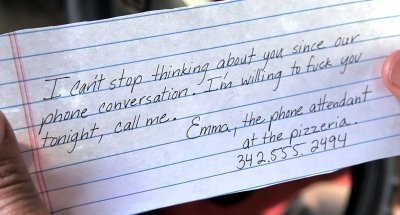 I can't stop thinking about you since our
phone conversation. I'm willing to fuck you
tonight, call me..
Emma, the phone attendant
at the pizzeria.
342.555.2494